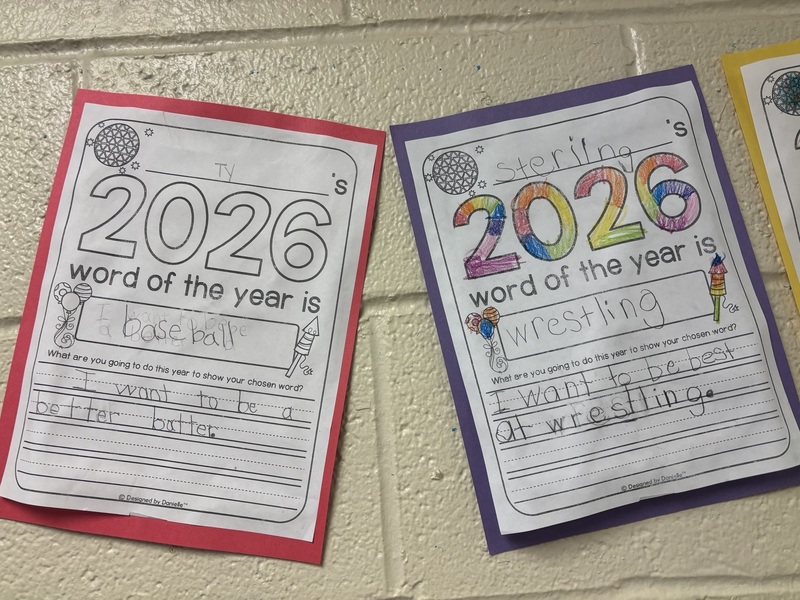 TY 's
2026
word of the year is
baseball
What are you going to do this year to show your chosen word?
I want to be a
better batter.
© Designed by Danielle™
steriIng 's
2026
word of the year is
wrestling
What are you going to do this year to show your chosen word?
I want to be best
at wrestling.
© Designed by Danielle™